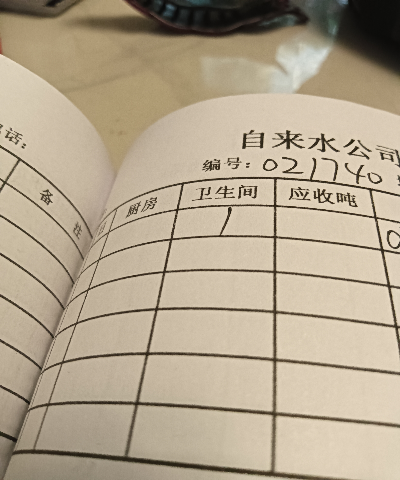 话:
备 注
自来水公司
编号: 021740
厨房 卫生间 应收吨
1
0